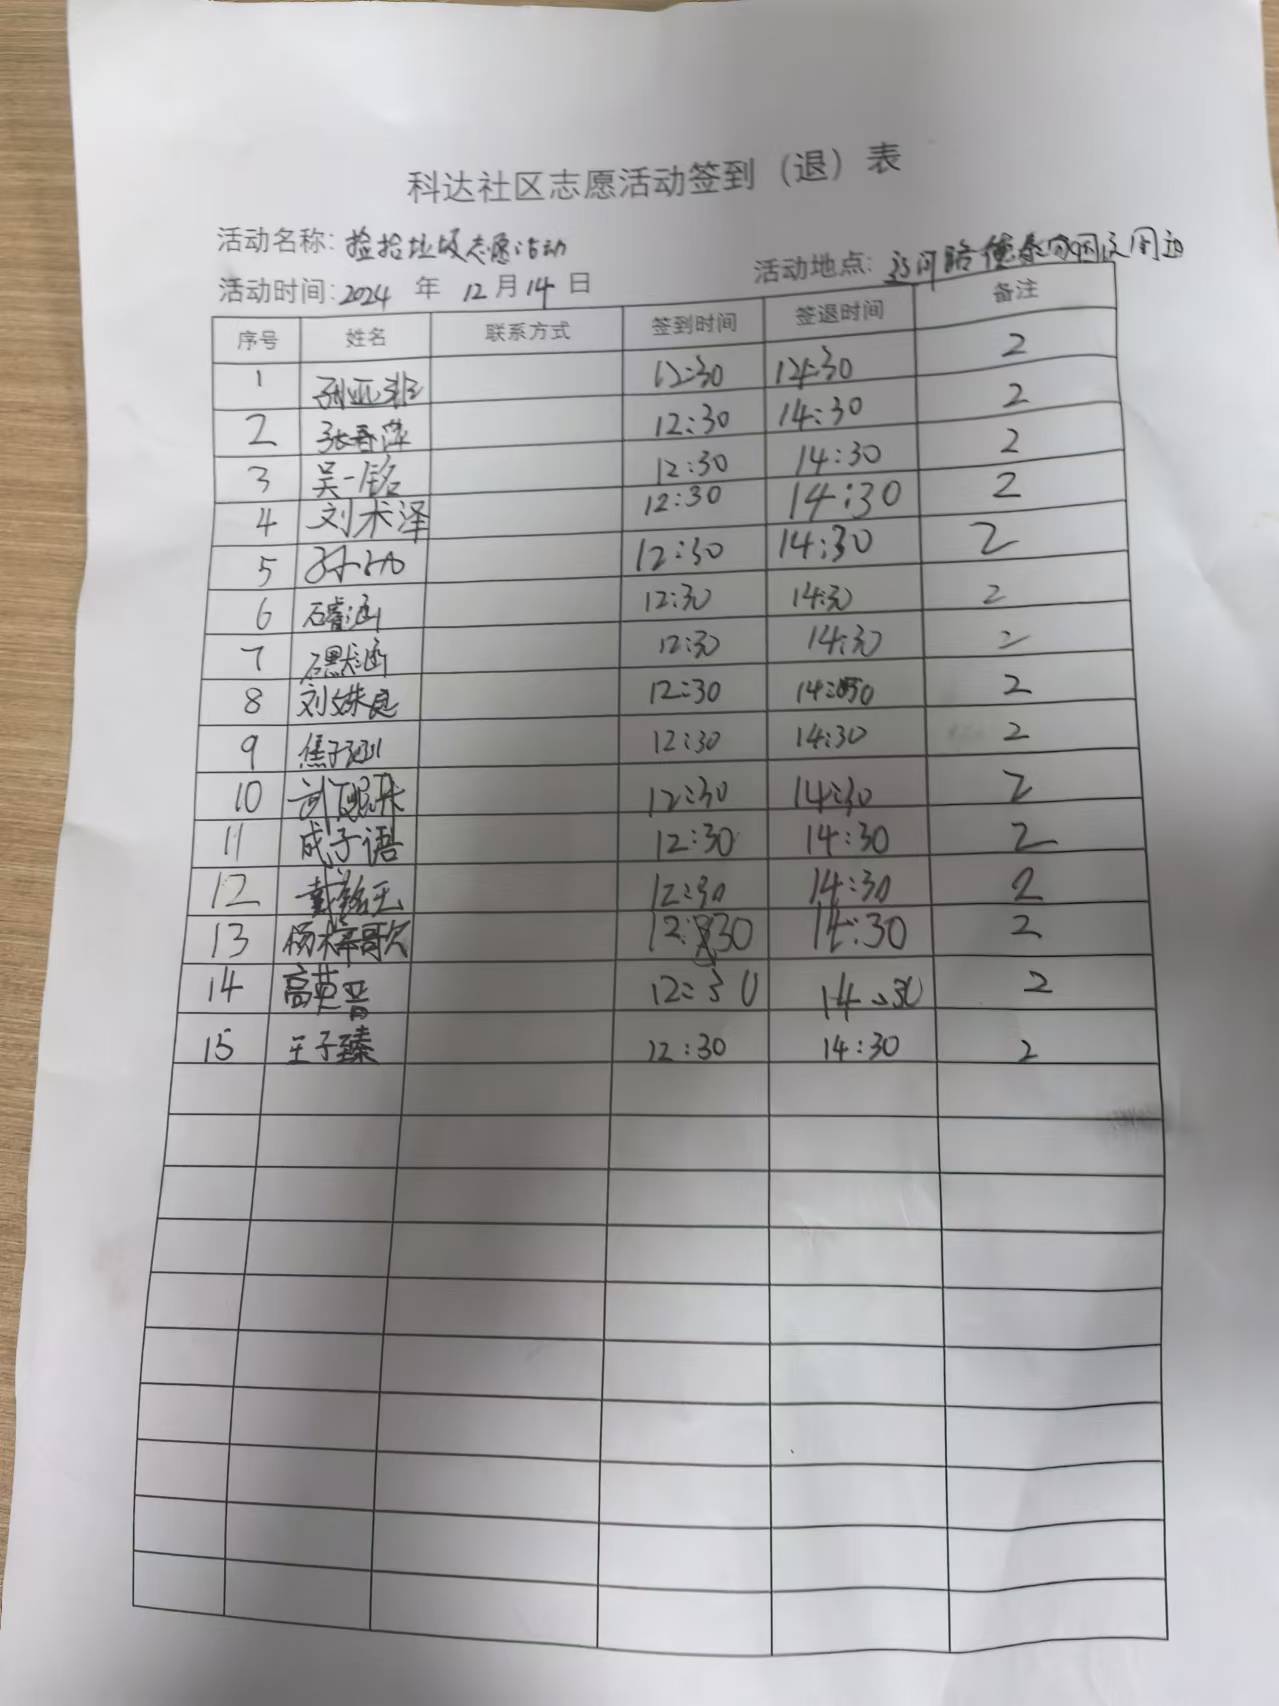 科达社区志愿活动签到（退）表
活动名称: 捡拾垃圾志愿活动
活动时间: 2024 年 12 月 14 日 活动地点: 路德泰 周边
序号 姓名 联系方式 签到时间 签退时间 备注
1 孙亚非 12:30 14:30 2
2 张春萍 12:30 14:30 2
3 吴一铭 12:30 14:30 2
4 刘术泽 12:30 14:30 2
5 12:30 14:30 2
6 石睿涵 12:30 14:30 2
7 石默涵 12:30 14:30 2
8 刘姝良 12:30 14:30 2
9 焦子涵 12:30 14:30 2
10 12:30 14:30 2
11 成子语 12:30 14:30 2
12 12:30 14:30 2
13 杨梓歌 12:30 14:30 2
14 高英晋 12:30 14:30 2
15 王子臻 12:30 14:30 2